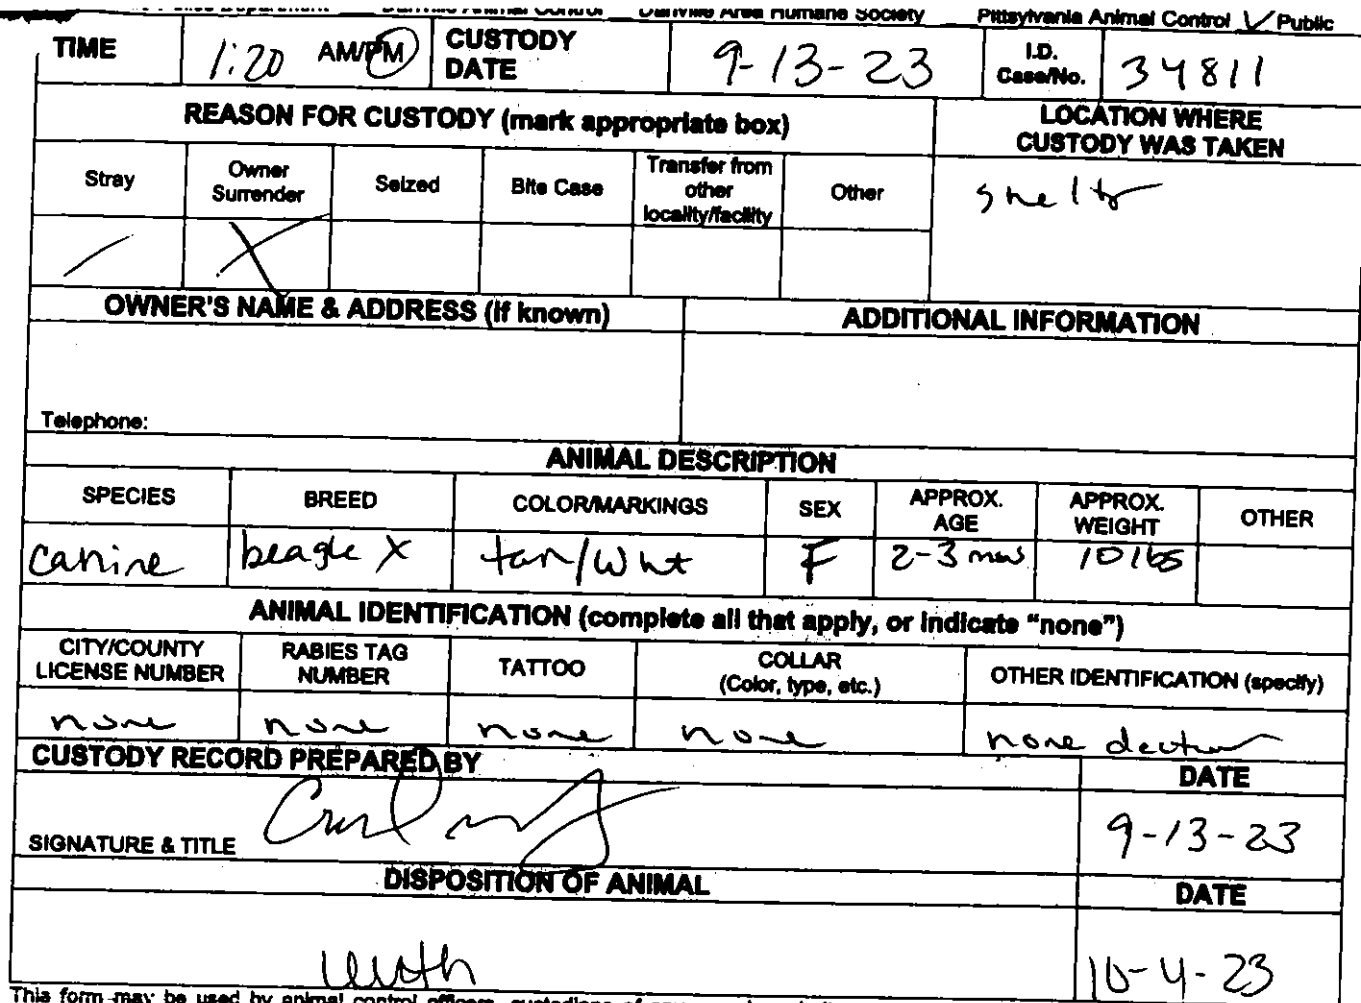 Police Department Danville Animal Control Danville Area Humane Society Pittsylvania Animal Control ✓ Public
TIME 1:20 AM/PM CUSTODY DATE 9-13-23 I.D. Case/No. 34811
REASON FOR CUSTODY (mark appropriate box) LOCATION WHERE CUSTODY WAS TAKEN
Stray Owner Surrender Seized Bite Case Transfer from other locality/facility Other
/ X
OWNER'S NAME & ADDRESS (if known) ADDITIONAL INFORMATION
Telephone:
ANIMAL DESCRIPTION
SPECIES BREED COLOR/MARKINGS SEX APPROX. AGE APPROX. WEIGHT OTHER
canine beagle X tan/wht F 2-3 10 lbs
ANIMAL IDENTIFICATION (complete all that apply, or indicate “none”)
CITY/COUNTY LICENSE NUMBER RABIES TAG NUMBER TATTOO COLLAR (Color, type, etc.) OTHER IDENTIFICATION (specify)
none none none none none
CUSTODY RECORD PREPARED BY DATE
SIGNATURE & TITLE 9-13-23
DISPOSITION OF ANIMAL DATE
10-4-23
This form may be used by animal control officers, custodians of